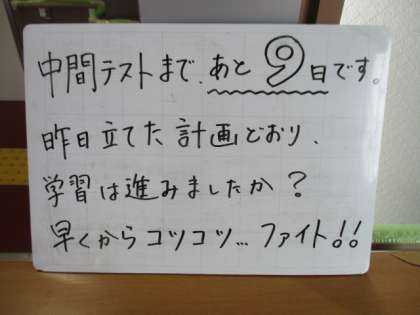 中間テストまで、あと9日です。
昨日立てた計画どおり、
学習は進みましたか？
早くからコツコツ…ファイト!!